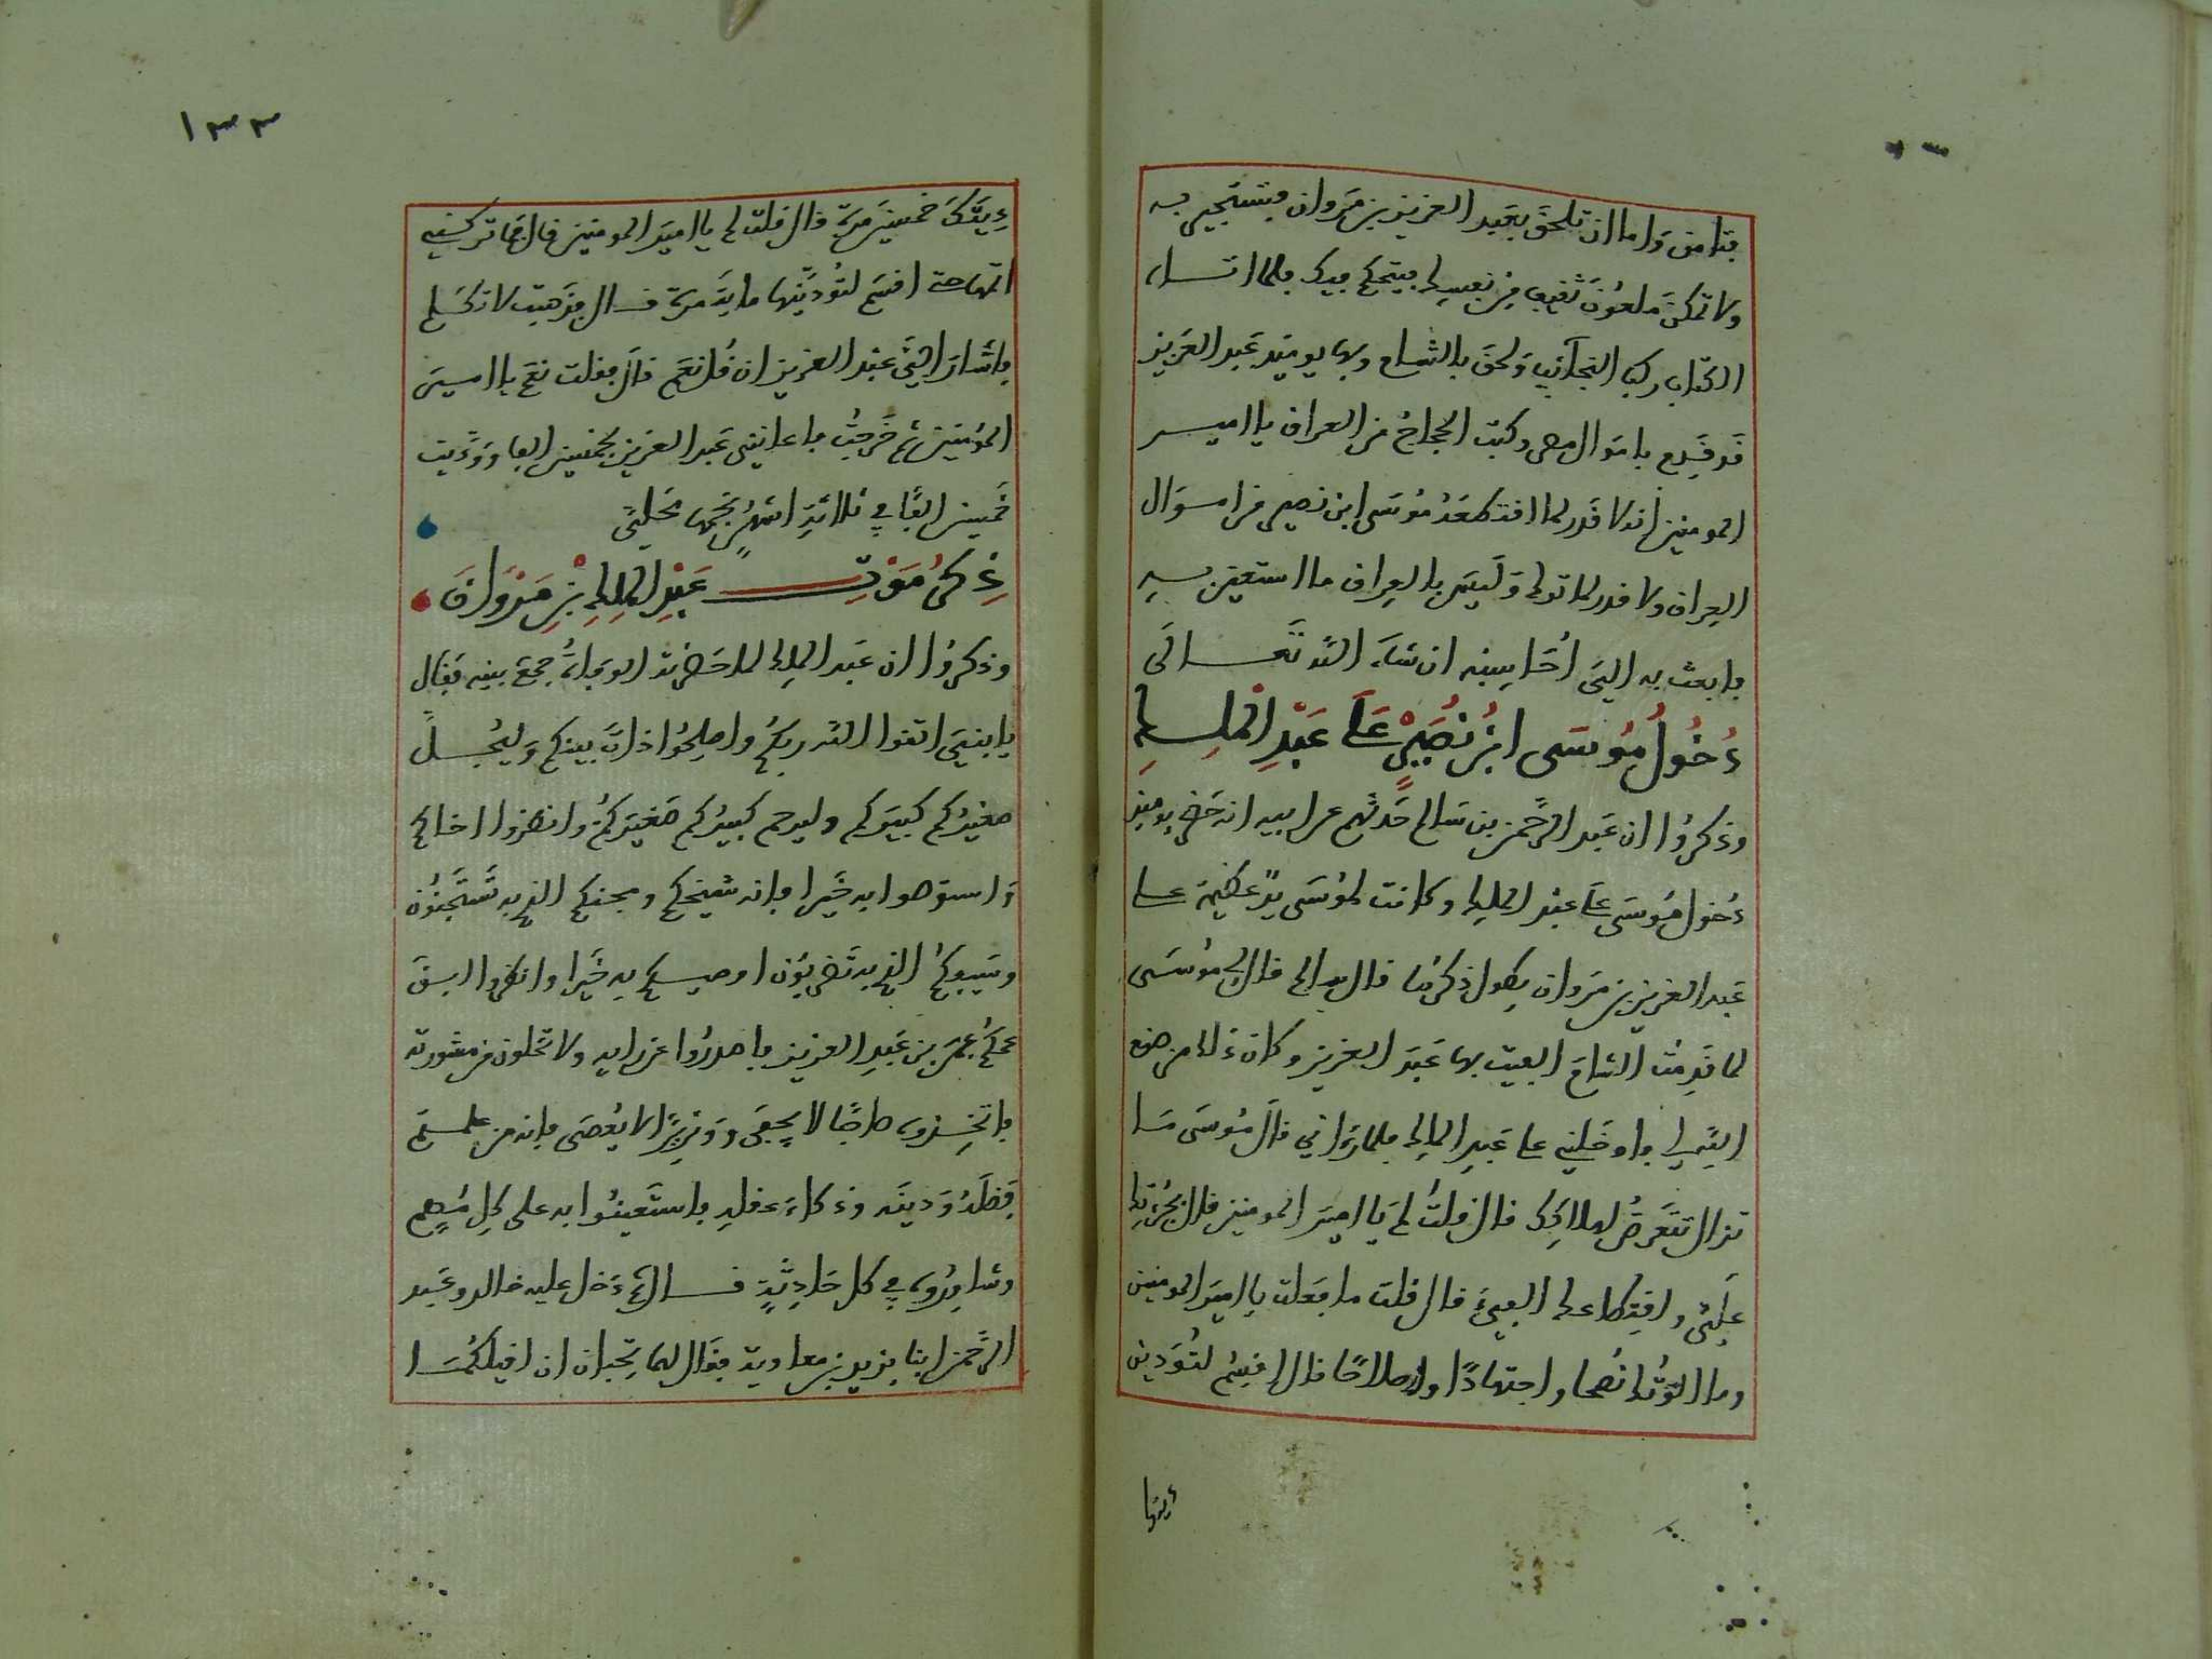 فتامن واما ان تلحق بعبد العزيز بن مروان فتستجير به
ولا تمكن ملعون ثقيف من نفسك فيتحكم فيك فلما اتاه
الكتاب ركب النجآئب ولحق بالشام وبها يوميذ عبد العزيز
قد قدم باموال مصر وكتب الحجاج من العراق يا امير
المومنين انه لا قدر لما اقتطعه موسى ابن نصير من اموال
العراق ولا قدر لما توله وليس بالعراق ما استعين به
فابعث به الي احاسبه ان شاء الله تعالى
دخول موسى ابن نصير على عبد الملك
وذكروا ان عبد الرحمن بن سالم حدثهم عن ابيه انه حضر يوميذ
دخول موسى على عبد الملك وكانت لموسى يد عظيمة على
عبد العزيز بن مروان يطول ذكرها قال سالم قال لي موسى
لما قدمت الشام الفيت بها عبد العزيز وكان ذلك من صنع
الله لي فادخلني على عبد الملك فلما رءاني قال موسى ما
تزال تتعرض لهلاكك قال قلت لم يا امير المومنين قال بجرءتك
علي واقتطاعك الفيء قال قلت ما فعلت يا امير المومنين
وما الوتك نصحا واجتهادا واصلاحا قال اقسم لتودين
ديتها
١٣٣
ديتك خمسين مرة قال قلت لم يا امير المومنين قال فما تركني
اتمها حتى اقسم لتودينها ماية مرة قال فذهبت لاتكلم
فاشار الي عبد العزيز ان قل نعم قال فقلت نعم يا امير
المومنين ثم خرجت فاعانني عبد العزيز بخمسين الفا ووديت
خمسين الفا في ثلاثة اشهر نجمها علي
ذكر موت عبد الملك بن مروان
وذكروا ان عبد الملك لما حضرته الوفاة جمع بنيه فقال
يا بني اتقوا الله ربكم واصلحوا ذات بينكم وليجل
صغيركم كبيركم وليرحم كبيركم صغيركم وانظروا اخاكم
واستوصوا به خيرا فانه شيخكم ومجنكم الذي به تستجنون
وسيفكم الذي به تضربون اوصيكم به خيرا وانظروا ابن
عمكم عمر بن عبد العزيز فاصدروا عن رايه ولا تخلون من مشورته
فاتخذوه صاحبا لا يجفى ووزيرا لا يعصى فانه من علمتم
فضله ودينه وذكاء عقله فاستعينوا به على كل مهم
وشاوروه في كل حادثة قال ثم دخل عليه خالد وعبد
الرحمن ابنا يزيد بن معاوية فقال لهما تحبان ان اقيلكما